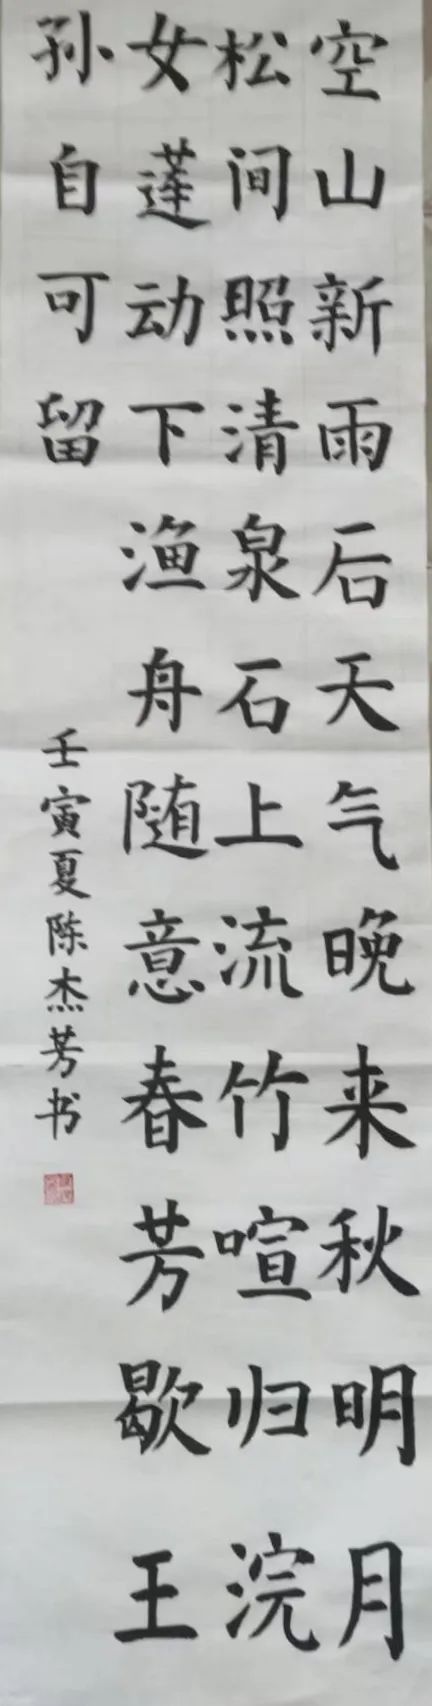 空山新雨后天气晚来秋明月
松间照清泉石上流竹喧归浣
女莲动下渔舟随意春芳歇王
孙自可留
壬寅夏陈杰芳书